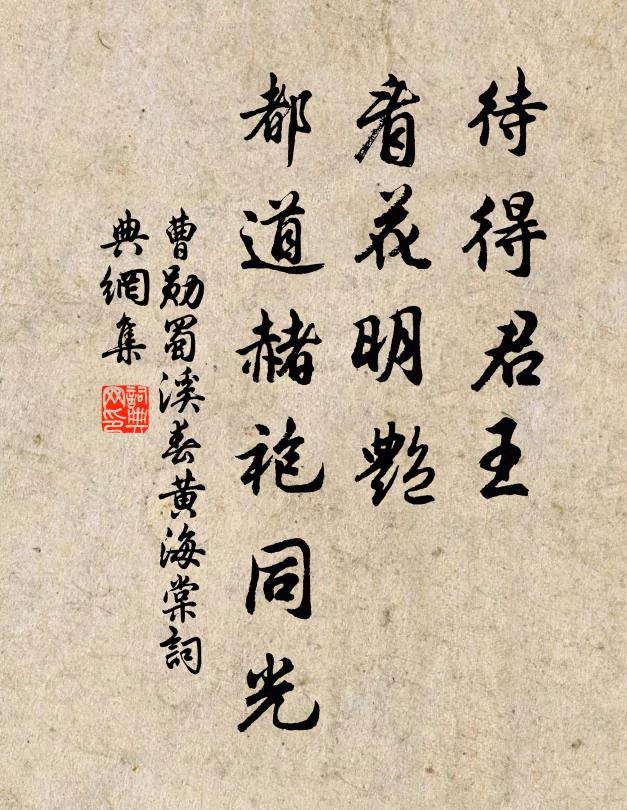 待得君王
看花明艷
都道赭袍同光
曹勛蜀溪春黄海棠詞
典網集
詞典
网印